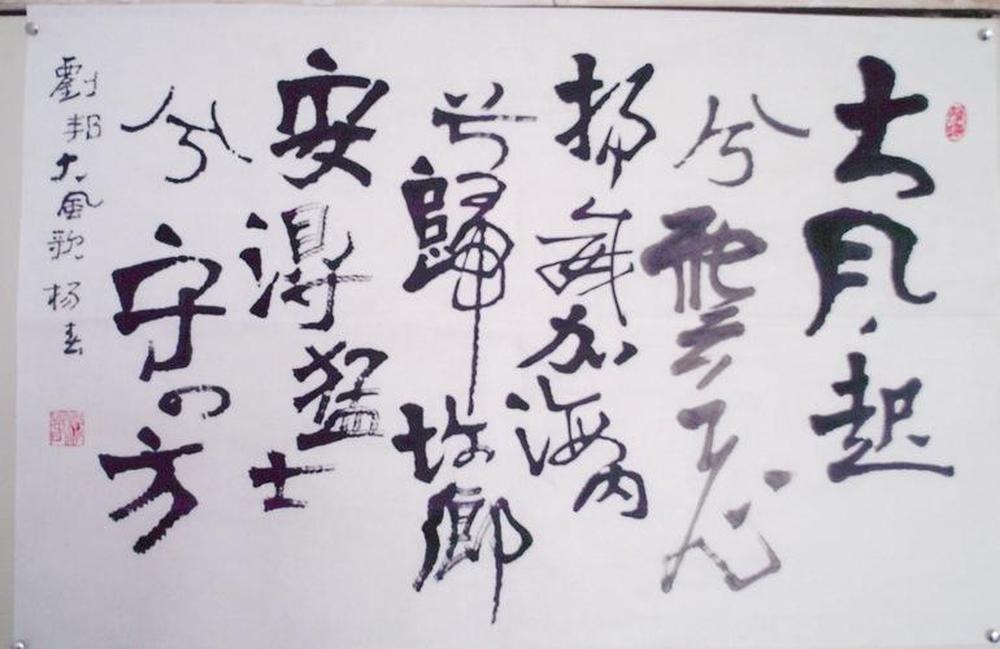 大風起
兮雲飛
扬威加海内
兮歸故鄉
安得猛士
兮守四方
劉邦大風歌 杨春